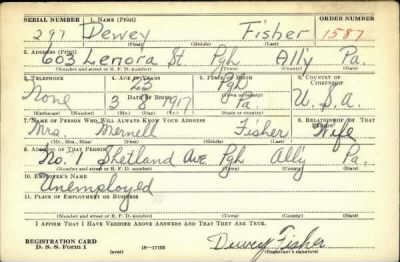 SERIAL NUMBER 1. NAME (Print) ORDER NUMBER
297 Dewey Fisher 1587
(First) (Middle) (Last)
2. ADDRESS (Print)
603 Lenora St. Pgh Ally Pa.
(Number and street or R. F. D. number) (Town) (County) (State)
3. TELEPHONE 4. AGE IN YEARS 5. PLACE OF BIRTH 6. COUNTRY OF CITIZENSHIP
None 23 Pgh
DATE OF BIRTH
3 8 1917 Pa. U.S.A.
(Exchange) (Number) (Mo.) (Day) (Yr.) (State or country)
7. NAME OF PERSON WHO WILL ALWAYS KNOW YOUR ADDRESS 8. RELATIONSHIP OF THAT PERSON
Mrs. Mernell Fisher Wife
(Mr., Mrs., Miss) (First) (Middle) (Last)
9. ADDRESS OF THAT PERSON
No. 1 Shetland Ave Pgh Ally Pa.
(Number and street or R. F. D. number) (Town) (County) (State)
10. EMPLOYER'S NAME
Unemployed
11. PLACE OF EMPLOYMENT OR BUSINESS
(Number and street or R. F. D. number) (Town) (County) (State)
I AFFIRM THAT I HAVE VERIFIED ABOVE ANSWERS AND THAT THEY ARE TRUE.
REGISTRATION CARD
D. S. S. Form 1 (over) 16-17105 Dewey Fisher
(Registrant's signature)